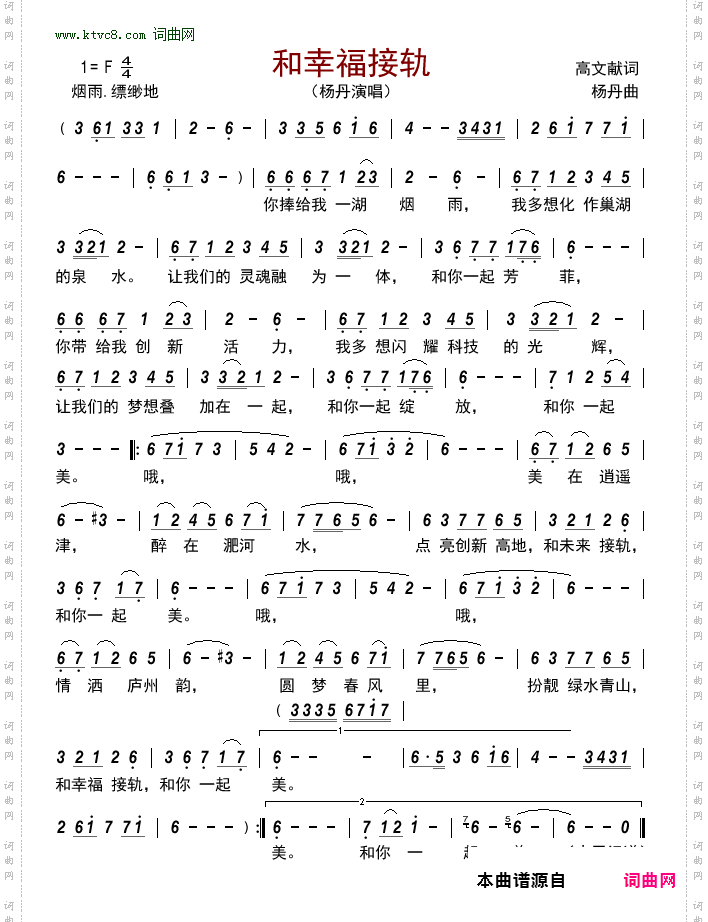 www.ktvc8.com 词曲网
和幸福接轨
1= F 4/4
高文献词
烟雨.缥缈地
（杨丹演唱）
杨丹曲
( 3 61 33 1 | 2 - 6 - | 3 35 61 6 | 4 - - 3431 | 2 61 7 71 |
6 - - - | 6 61 3 - ) | 66 67 1 23 | 2 - 6 - | 67 12 3 45 |
你捧给我 一湖 烟 雨， 我多想化 作巢湖
3 321 2 - | 67 12 3 45 | 3 321 2 - | 3 6 77 176 | 6 - - - |
的泉 水。 让我们的 灵魂融 为 一 体， 和你一起 芳 菲，
66 67 1 23 | 2 - 6 - | 67 12 3 45 | 3 3321 2 - |
你带 给我 创 新 活 力， 我多 想闪 耀 科技 的 光 辉，
67 12 3 45 | 3 321 2 - | 3 6 77 176 | 6 - - - | 7 1 2 54 |
让我们的 梦想叠 加在 一 起， 和你一起 绽 放， 和你 一起
3 - - - ‖: 6 71 7 3 | 5 4 2 - | 6 71 3 2 | 6 - - - | 67 12 6 5 |
美。 哦， 哦， 美 在 逍遥
6 - #3 - | 12 45 6 71 | 7 7 6 5 6 - | 6 3 77 65 | 3 21 2 6 |
津， 醉 在 淝河 水， 点 亮创新 高地，和未来 接轨，
3 6 7 17 | 6 - - - | 6 71 7 3 | 5 4 2 - | 6 71 3 2 | 6 - - - |
和你一 起 美。 哦， 哦，
67 12 6 5 | 6 - #3 - | 12 45 6 71 | 7 765 6 - | 6 3 77 65 |
情 洒 庐州 韵， 圆 梦 春 风 里， 扮靓 绿水青山，
( 3335 6717 |
1
3 21 2 6 | 3 6 7 17 | 6 - - - | 6·5 3 6 16 | 4 - - 3431 |
和幸福 接轨，和你 一起 美。
2
2 61 7 71 | 6 - - - ) :‖ 6 - - - | 7 12 1 - | 7 6 - 5 6 - | 6 - - 0 ‖
美。 和你 一
本曲谱源自
词曲网